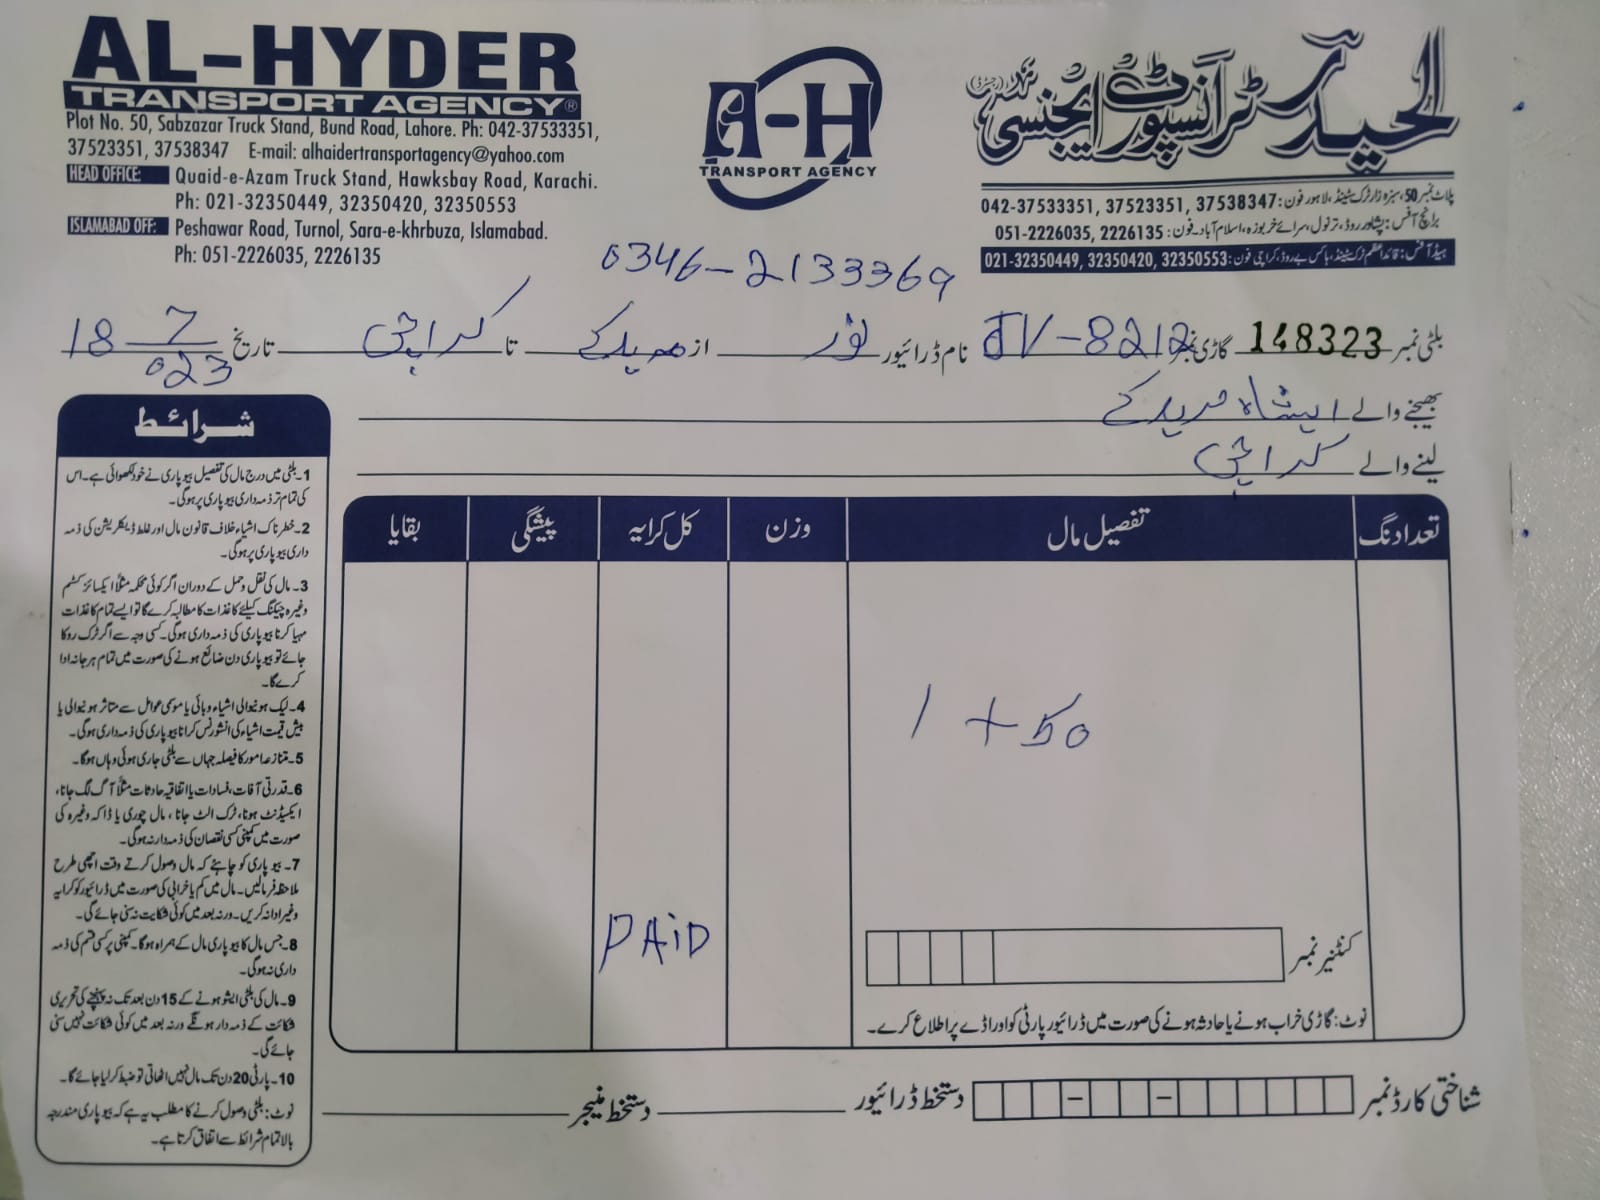 AL-HYDER
TRANSPORT AGENCY®
Plot No. 50, Sabzazar Truck Stand, Bund Road, Lahore. Ph: 042-37533351,
37523351, 37538347 E-mail: alhaidertransportagency@yahoo.com
HEAD OFFICE: Quaid-e-Azam Truck Stand, Hawksbay Road, Karachi.
Ph: 021-32350449, 32350420, 32350553
ISLAMABAD OFF: Peshawar Road, Turnol, Sara-e-khrbuza, Islamabad.
Ph: 051-2226035, 2226135
A-H
TRANSPORT AGENCY
الحیدر ٹرانسپورٹ ایجنسی
پلاٹ نمبر 50، سبزہ زار ٹرک سٹینڈ، لاہور فون: 042-37533351, 37523351, 37538347
برانچ آفس: پشاور روڈ، ترنول، سرائے خربوزہ، اسلام آباد۔ فون: 051-2226035, 2226135
ہیڈ آفس: قائداعظم ٹرک سٹینڈ، ہاکس بے روڈ، کراچی فون: 021-32350449, 32350420, 32350553
0346-2133369
بلٹی نمبر 148323 گاڑی نمبر JV-8212 نام ڈرائیور نور از مریدکے تا کراچی تاریخ 18 7 023
بھیجنے والے ایشاہ مریدکے
لینے والے کراچی
تعداد نگ تفصیل مال وزن کل کرایہ پیشگی بقایا
1 + 50
PAID
کنٹینر نمبر
نوٹ: گاڑی خراب ہونے یا حادثہ ہونے کی صورت میں ڈرائیور پارٹی کو اور اڈے پر اطلاع کرے۔
شناختی کارڈ نمبر دستخط ڈرائیور دستخط منیجر
شرائط
1۔ بلٹی میں درج مال کی تفصیل بیوپاری نے خود لکھوائی ہے۔ اس
کی تمام تر ذمہ داری بیوپاری پر ہوگی۔
2۔ خطرناک اشیاء خلاف قانون مال اور غلط ڈیکلریشن کی ذمہ
داری بیوپاری پر ہوگی۔
3۔ مال کی نقل و حمل کے دوران اگر کوئی محکمہ مثلاً ایکسائز کسٹم
وغیرہ چیکنگ کیلئے کاغذات کا مطالبہ کرے گا تو ایسے تمام کاغذات
مہیا کرنا بیوپاری کی ذمہ داری ہوگی۔ کسی وجہ سے اگر ٹرک روکا
جائے تو بیوپاری دن ضائع ہونے کی صورت میں تمام ہرجانہ ادا
کرے گا۔
4۔ لیک ہونیوالی اشیاء وبائی یا موسمی عوامل سے متاثر ہونیوالی یا
بیش قیمت اشیاء کی انشورنس کرانا بیوپاری کی ذمہ داری ہوگی۔
5۔ متنازعہ امور کا فیصلہ جہاں سے بلٹی جاری ہوئی وہاں ہوگا۔
6۔ قدرتی آفات، فسادات یا اتفاقیہ حادثات مثلاً آگ لگ جانا،
ایکسیڈنٹ ہونا، ٹرک الٹ جانا، مال چوری یا ڈاکہ وغیرہ کی
صورت میں کمپنی کسی نقصان کی ذمہ دار نہ ہوگی۔
7۔ بیوپاری کو چاہئے کہ مال وصول کرتے وقت اچھی طرح
ملاحظہ فرمالیں۔ مال میں کم یا خرابی کی صورت میں ڈرائیور کو کرایہ
وغیرہ ادا نہ کریں۔ ورنہ بعد میں کوئی شکایت نہ سنی جائے گی۔
8۔ جس مال کا بیوپاری مال کے ہمراہ ہوگا۔ کمپنی پر کسی قسم کی ذمہ
داری نہ ہوگی۔
9۔ مال کی بلٹی ایشو ہونے کے 15 دن بعد تک نہ پہنچنے کی تحریری
شکائت کے ذمہ دار ہونگے ورنہ بعد میں کوئی شکائت نہیں سنی
جائے گی۔
10۔ پارٹی 20 دن تک مال نہیں اٹھاتی تو ضبط کر لیا جائے گا۔
نوٹ: بلٹی وصول کرنے کا مطلب یہ ہے کہ بیوپاری مندرجہ
بالا تمام شرائط سے اتفاق کرتا ہے۔